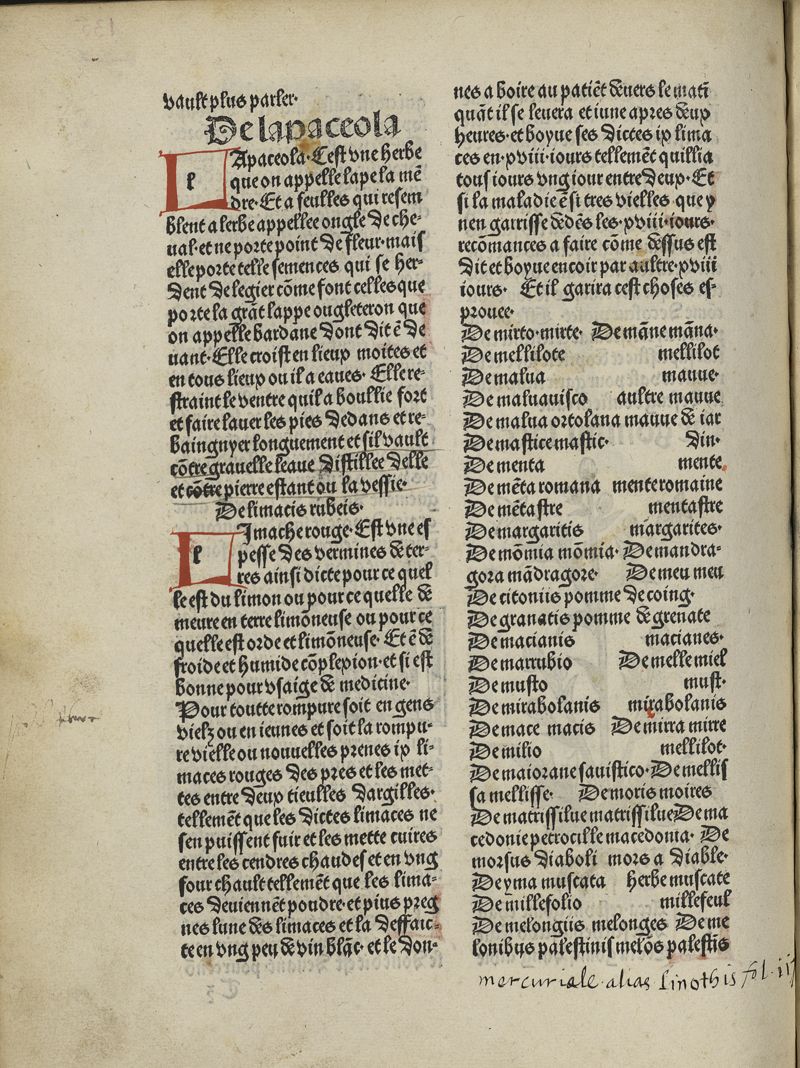 vault plus parler·
De lapaceola
LApaceola· Cest vne herbe
que on appelle lape la mẽ
dre· Et a feulles qui resem
blent a lerbe appellee ongle de che-
ual· et ne porte point de fleur· mais
elle porte telle semences qui se her-
dent de legier cõme font celles que
porte la grãt lappe ou gleteron que
on appelle bardane dont dit ẽ de
uant· Elle croist en lieux moites et
en tous lieux ou il a eaues· Elle re-
straint le ventre qui la boullie fort
et faire lauer les pies dedans et re-
baingnyer longuement et sil vault
cõtre grauelle leaue distillee delle
et cõtre pierre estant ou la vessie·
De limacis rubeis·
LImache rouge· Est vne es
pesse des vermines de ter-
res ainsi dicte pour ce quel
le est du limon ou pour ce quelle de
meure en terre limõneuse ou pour ce
quelle est orde et limõneuse· Et ẽ de
froide et humide cõplexion· et si est
bonne pour vsaige de medicine·
Pour toutte rompure soit en gens
vielz ou en ieunes et soit la rompu-
re vielle ou nouuelles prenes ix li-
maces rouges des pres et les met-
tes entre deux tieulles dargilles·
tellement que les dictes limaces ne
sen puissent fuir et les mette cuires
entre les cendres chaudes et en vng
four chault tellemẽt que les lima-
ces deuiennẽt poudre· et pius preg
nes lune des limaces et la deffaic-
te en vng peu de vin blãc· et le don-
nes a boire au patiẽt deuers le matĩ
quãt il se leuera et iune apres deux
heures· et boyue ses dictes ix lima
ces en· xviii· iours tellemẽt quil lia
tousiours vng iour entre deux· Et
si la maladie ẽ si tres vielles que y
nen garrisse dedẽs les· xviii· iours·
recõmances a faire cõme dessus est
dit et boyue encoir par aultre· xviii
iours· Et il garira cest choses es-
prouee·
De mirto· mirte· De mãne mãna·
De mellilote mellilot
De malua mauue·
De maluauisco aultre mauue
De malua ortolana mauue de iar
De mastice mastic· din·
De menta mente·
De mẽta romana mente romaine
De mẽtastre mentastre
De margaritis margarites·
De mõmia mõmia· De mandra-
gora mãdragore· De meu meu
De citoniis pomme de coing·
De granatis pomme de grenate
De macianis macianes·
De marrubio De melle miel
De musto must·
De mirabolanis mirabolanis
De mace macis De mirra mirre
De milio mellilot·
De maiorane sauistico· De mellis
sa mellisse· De moris moires
De matrissilue matrissilue De ma
cedonie petrocille macedonia· De
morsus diaboli mors a diable·
De yma muscata herbe muscate
De millefolio millefeul
De melongiis melonges De me
lonibus palestinis melõs palestĩs
mercuriale· alias linothis fol· iij